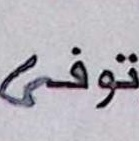 توفى